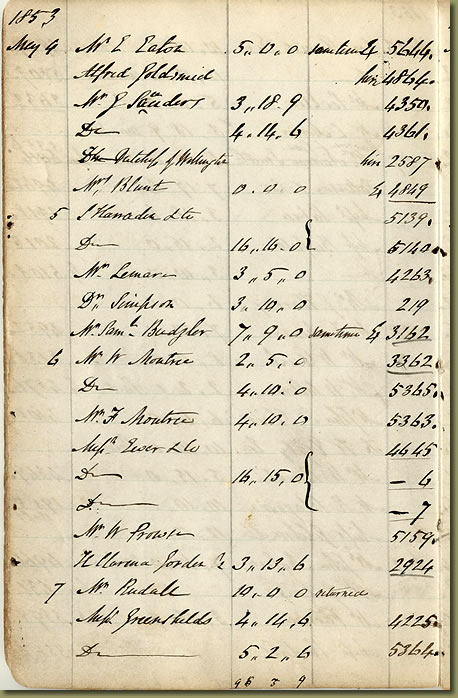 1853
May 4 Mr E Eaton 5,, 0,, 0 sometime 5644.
Alfred Goldsmid hire 4864.
Mr J Saunders 3,, 18. 9 4350.
Do 4.. 14.. 6 4361.
Dutchess of Wellington hire 2587
Mrs Blunt 0.. 0.. 0 4849
5 & Co 5139.
Do 16,, 16.. 0 5140
Mr Lemare 3,, 5,, 0 4263.
Dr Simpson 3,, 10,, 0 219
Mr Saml Budgler 7,, 9,, 0 sometime 3162
6 Mr W Moutrie 2,, 5,, 0 3362
Do 4,, 10,, 0 5365.
Mr F Moutrie 4,, 10,, 0 5363.
Messrs Ewer & Co 4645
Do 16,, 15,, 0 – 6
Do – 7
Mr W Prowse 5159.
3,, 13,, 6 2924
7 Mr Rudall 10,, 0 0 returned
Messrs Greenshields 4,, 14,, 6 4225.
Do 5,, 2,, 6 5364.
96 3 9